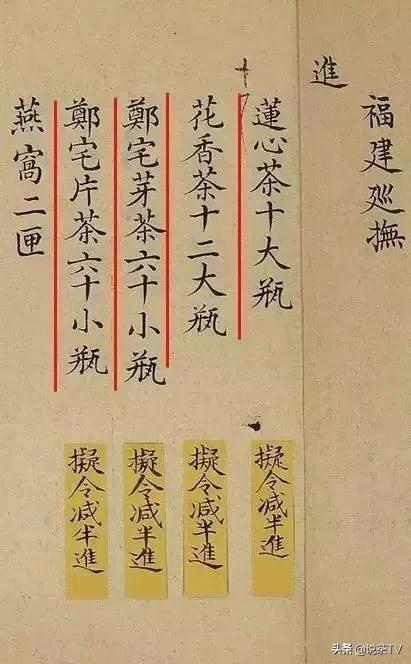 福建廵撫
進
蓮心茶十大瓶
花香茶十二大瓶
鄭宅芽茶六十小瓶
鄭宅片茶六十小瓶
燕窩二匣
擬令减半進
擬令减半進
擬令减半進
擬令减半進
头条@说茶TV